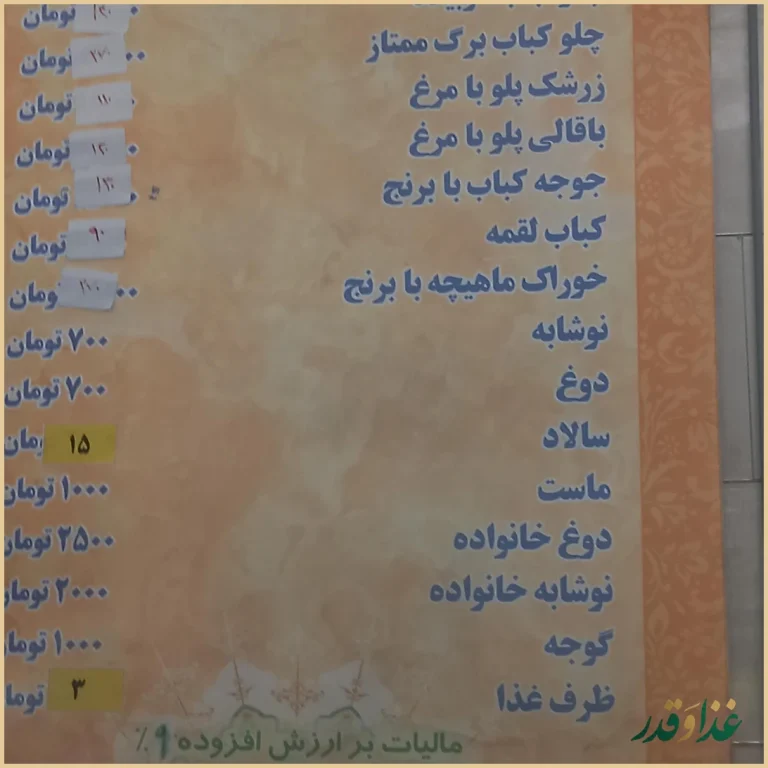 تومان
چلو کباب برگ ممتاز ۰۰ تومان
زرشک پلو با مرغ ۱۱۰ تومان
باقالی پلو با مرغ تومان
جوجه کباب با برنج تومان
کباب لقمه ۹۰ تومان
خوراک ماهیچه با برنج ۰۰
نوشابه ۷۰۰ تومان
دوغ ۷۰۰ تومان
سالاد ۱۵
ماست ۱۰۰۰ تومان
دوغ خانواده ۲۵۰۰ تومان
نوشابه خانواده ۲۰۰۰ تومان
گوجه ۱۰۰۰ تومان
ظرف غذا ۳ تومان
مالیات بر ارزش افزوده ۹٪
غذا وَ قدر